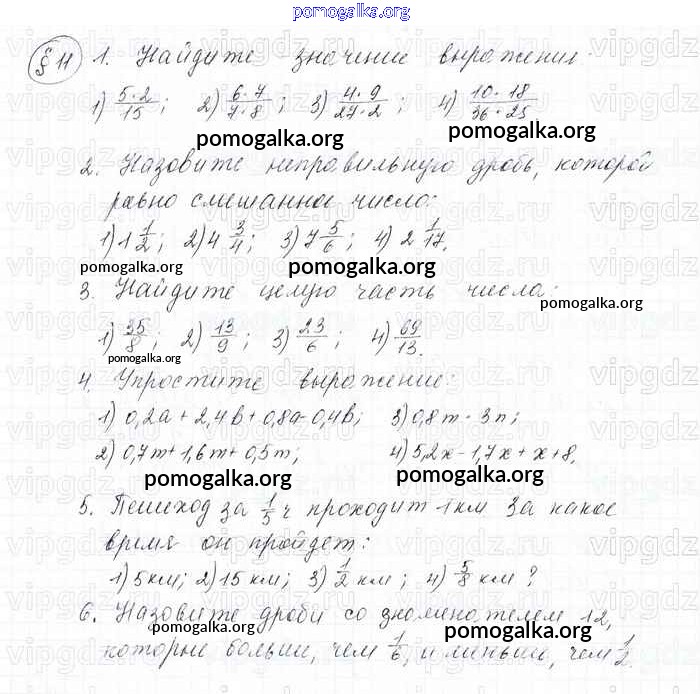 pomogalka.org
§ 11 1. Найдите значение выражения:
1) 5·2/15; 2) 6·7/7·8; 3) 4·9/27·2; 4) 10·18/36·25
pomogalka.org pomogalka.org
2. Назовите неправильную дробь, которой
равно смешанное число:
1) 1 1/2; 2) 4 3/4; 3) 7 5/6; 4) 2 1/17.
pomogalka.org pomogalka.org
3. Найдите целую часть числа:
pomogalka.org
1) 35/8; 2) 13/9; 3) 23/6; 4) 69/13.
pomogalka.org
4. Упростите выражение:
1) 0,2a + 2,4b + 0,8a - 0,4b; 3) 0,8m · 3n;
2) 0,7m + 1,6m + 0,5m; 4) 5,2x - 1,7x + x + 8.
pomogalka.org pomogalka.org
5. Пешеход за 1/5 ч проходит 1 км. За какое
время он пройдет:
1) 5 км; 2) 15 км; 3) 1/2 км; 4) 5/8 км?
6. Назовите дроби со знаменателем 12,
pomogalka.org pomogalka.org
которые больше, чем 1/6, и меньше, чем 1/2.